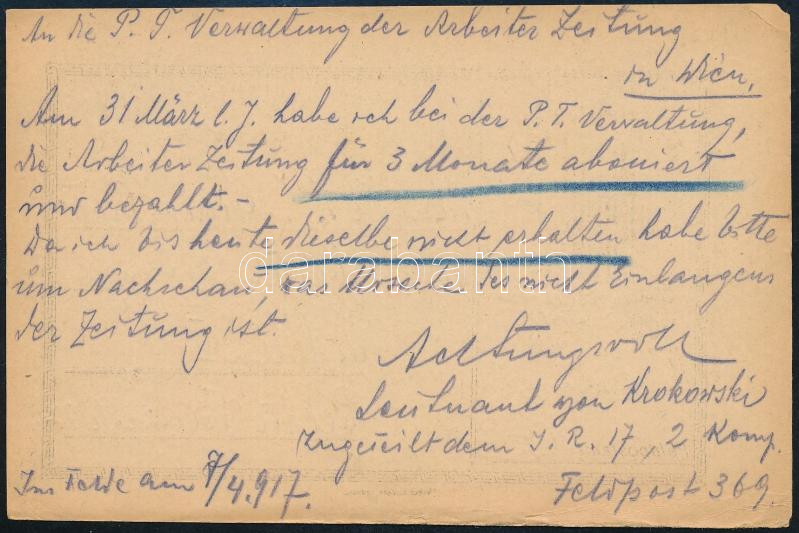 An die P. T. Verwaltung der Arbeiter Zeitung
in Wien,
Am 31 März l. J. habe ich bei der P. T. Verwaltung,
die Arbeiter Zeitung für 3 Monate aboniert
und bezahlt.-
Da ich bis heute dieselbe nicht erhalten habe bitte
um Nachschau, was Ursache des nicht Einlangens
der Zeitung ist.
Achtungsvoll
Leutnant von Krokowski
zugeteilt dem I. R. 17 2 Komp.
Im Felde am 7/4.917.
Feldpost 369.
darabanth